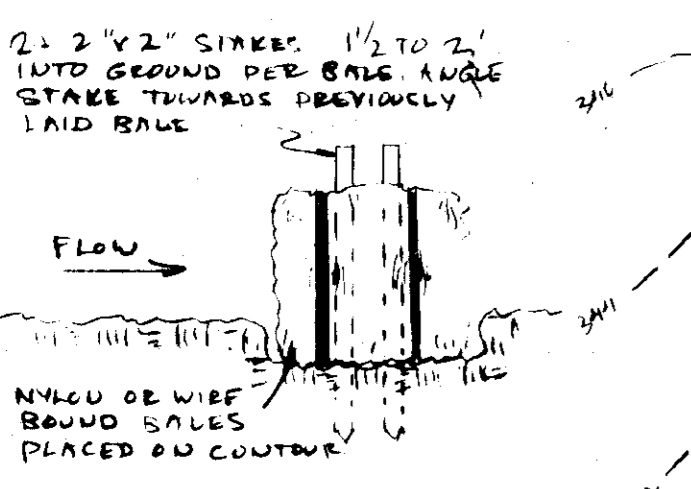 2- 2"x2" STAKES 1 1/2 TO 2'
INTO GROUND PER BALE. ANGLE
STAKE TOWARDS PREVIOUSLY
LAID BALE
FLOW
NYLON OR WIRE
BOUND BALES
PLACED ON CONTOUR